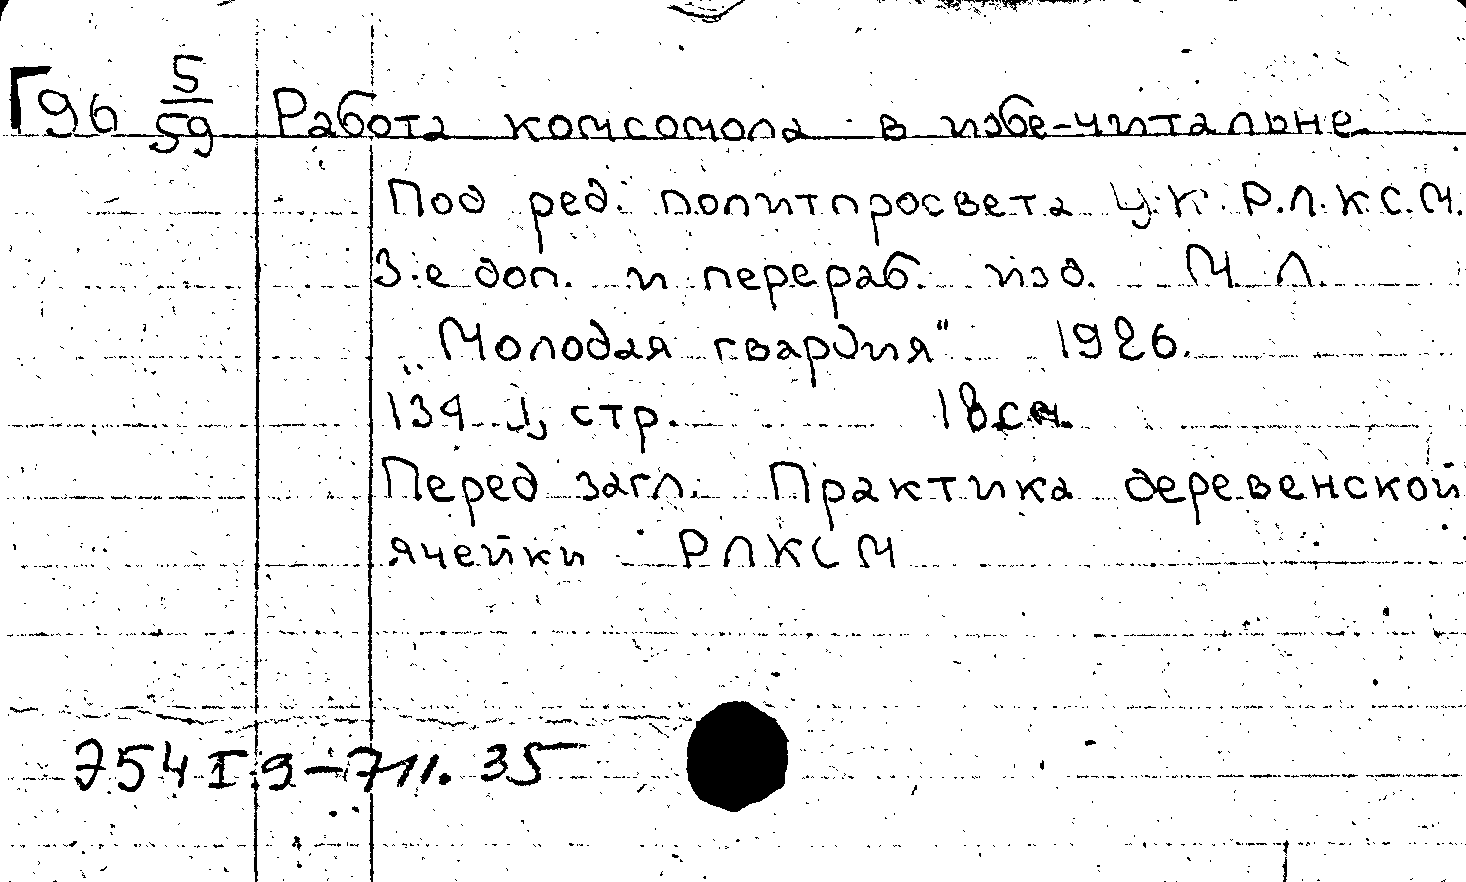 Г96 5/59 Работа комсомола в избе-читальне.
Под ред. политпросвета Ц.К. Р.Л.К.С.М.
3-е доп. и перераб. изд. М. Л.
„Молодая гвардия" 1926.
134 стр. 18 см.
Перед загл. Практика деревенской
ячейки РЛКСМ
754 I.9-711. 35